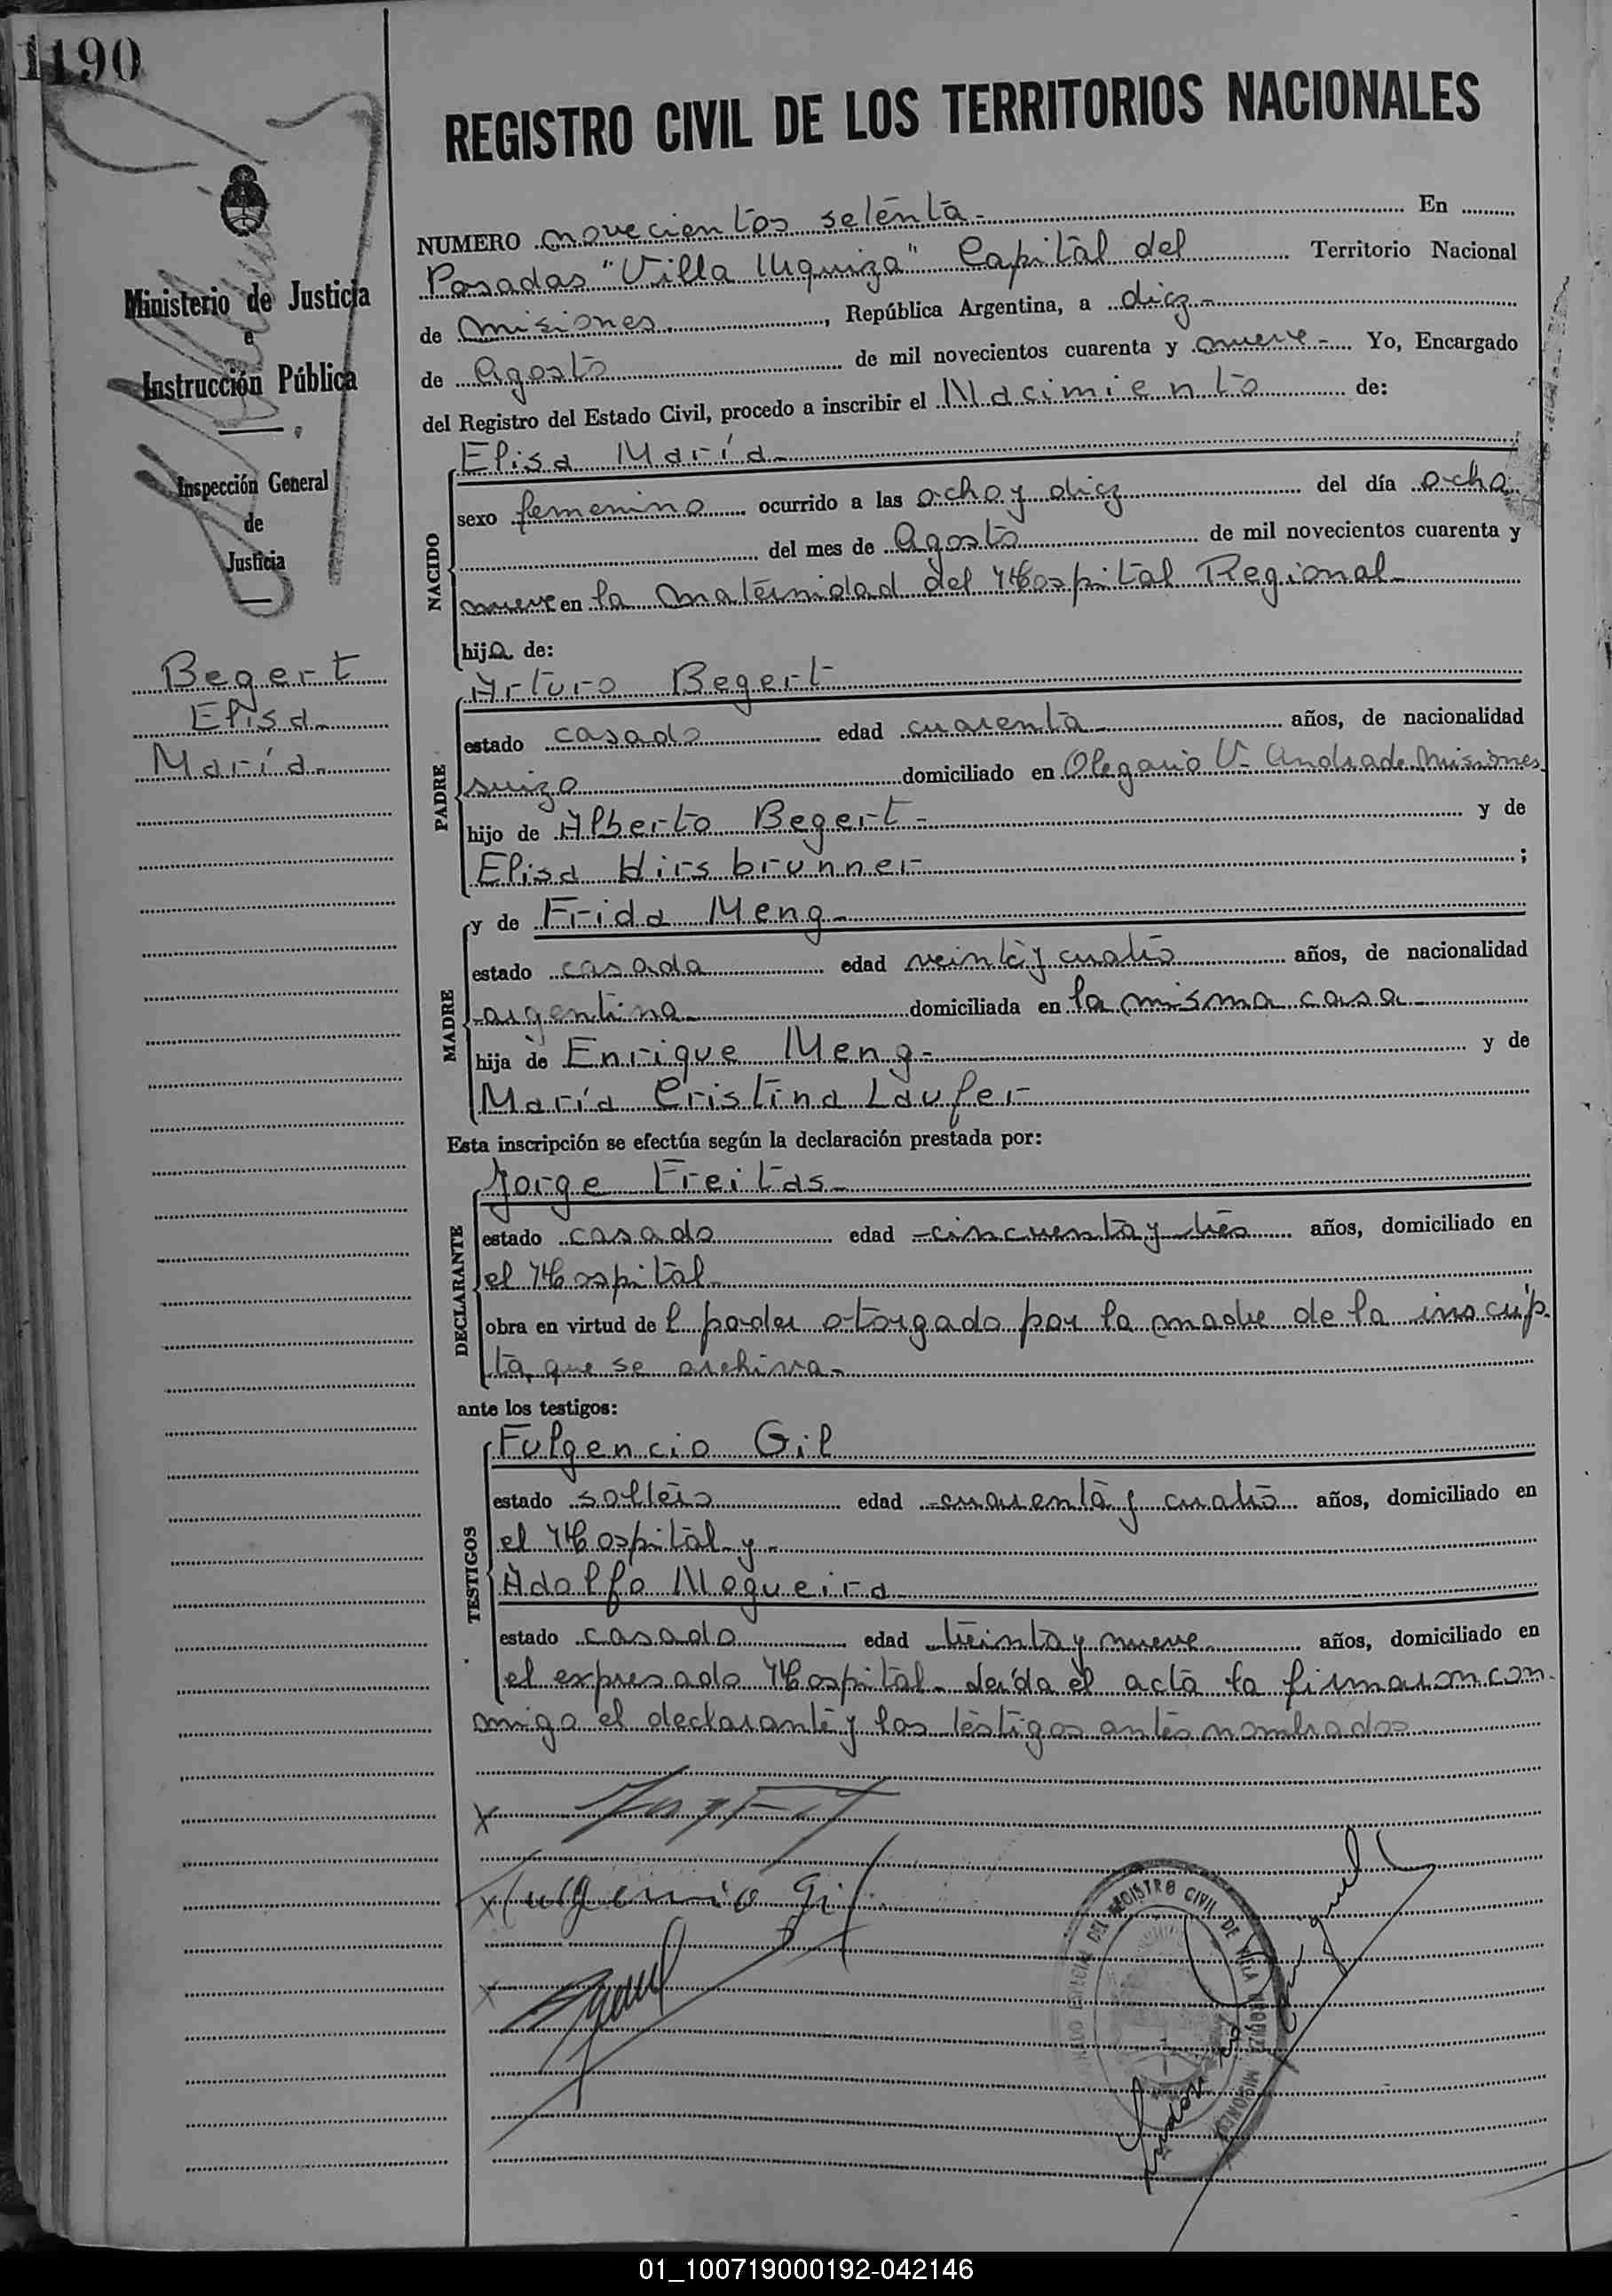 1190
REGISTRO CIVIL DE LOS TERRITORIOS NACIONALES
Ministerio de Justicia
e
Instrucción Pública
Inspección General
de
Justicia
Begert
Elisa
María
NUMERO novecientos setenta - En
Posadas "Villa Urquiza" Capital del Territorio Nacional
de Misiones, República Argentina, a diez -
de Agosto de mil novecientos cuarenta y nueve - Yo, Encargado
del Registro del Estado Civil, procedo a inscribir el Nacimiento de:
NACIDO
Elisa María -
sexo femenino ocurrido a las ocho y diez del día ocho
del mes de Agosto de mil novecientos cuarenta y
nueve en la maternidad del Hospital Regional -
hija de:
PADRE
Arturo Begert
estado casado edad cuarenta - años, de nacionalidad
suizo domiciliado en Olegario V. Andrade Misiones
hijo de Alberto Begert - y de
Elisa Hirsbrunner ;
MADRE
y de Frida Meng -
estado casada edad veinte y cuatro años, de nacionalidad
argentina - domiciliada en la misma casa -
hija de Enrique Meng - y de
María Cristina Laufer
Esta inscripción se efectúa según la declaración prestada por:
DECLARANTE
Jorge Freitas -
estado casado edad cincuenta y tres años, domiciliado en
el Hospital -
obra en virtud de l poder otorgado por la madre de la inscrip-
ta, que se archiva -
ante los testigos:
TESTIGOS
Fulgencio Gil
estado soltero edad cuarenta y cuatro años, domiciliado en
el Hospital y -
Adolfo Nogueira
estado casado edad treinta y nueve años, domiciliado en
el expresado Hospital - Leída el acta la firmaron con-
migo el declarante y los testigos antes nombrados
x
x Fulgencio Gil
x
REGISTRO CIVIL DE VILLA URQUIZA MISIONES
01_100719000192-042146